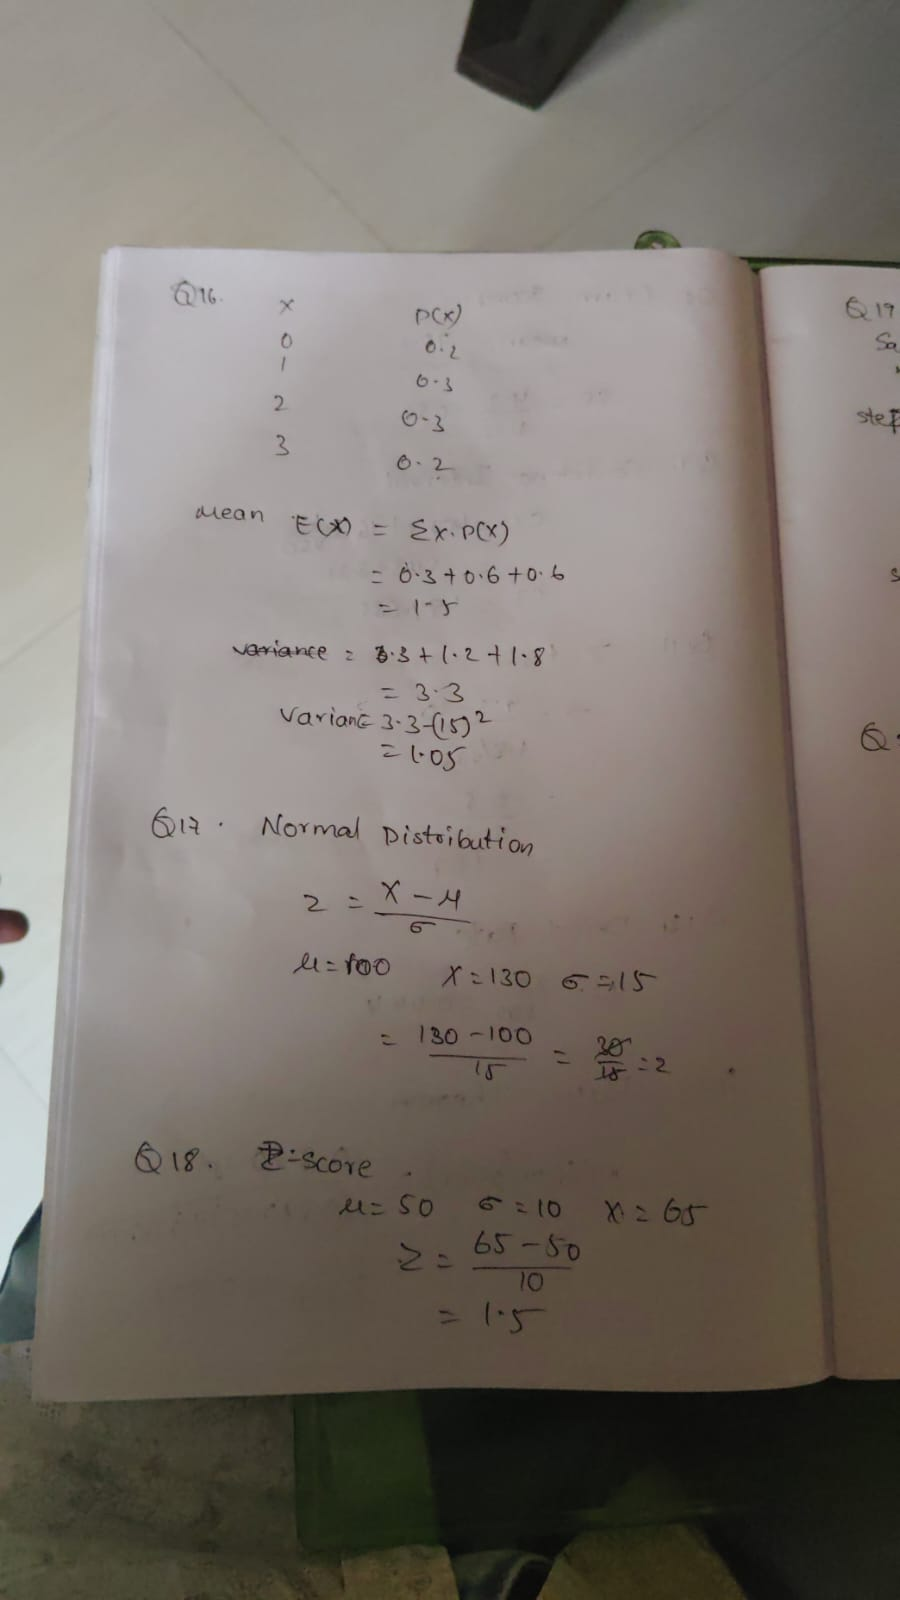 Q16.
X P(X)
0 0.2
1 0.3
2 0.3
3 0.2
Mean E(X) = Σx.P(X)
= 0.3+0.6+0.6
= 1.5
variance = 0.3+1.2+1.8
= 3.3
Varianc= 3.3-(15)²
= 1.05
Q17. Normal Distribution
z = X-μ
σ
μ=100 X=130 σ=15
= 130-100 = 30 = 2
15 15
Q18. Z-score
μ=50 σ=10 X=65
Z = 65-50
10
= 1.5
Q19
Sa
step
Q